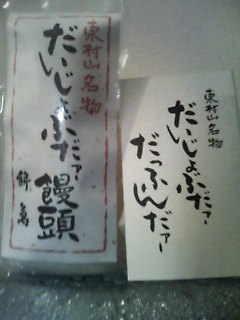 東村山名物
だいじょぶだァー
饅頭
餅萬
東村山名物
だいじょぶだァー
だっふんだァー